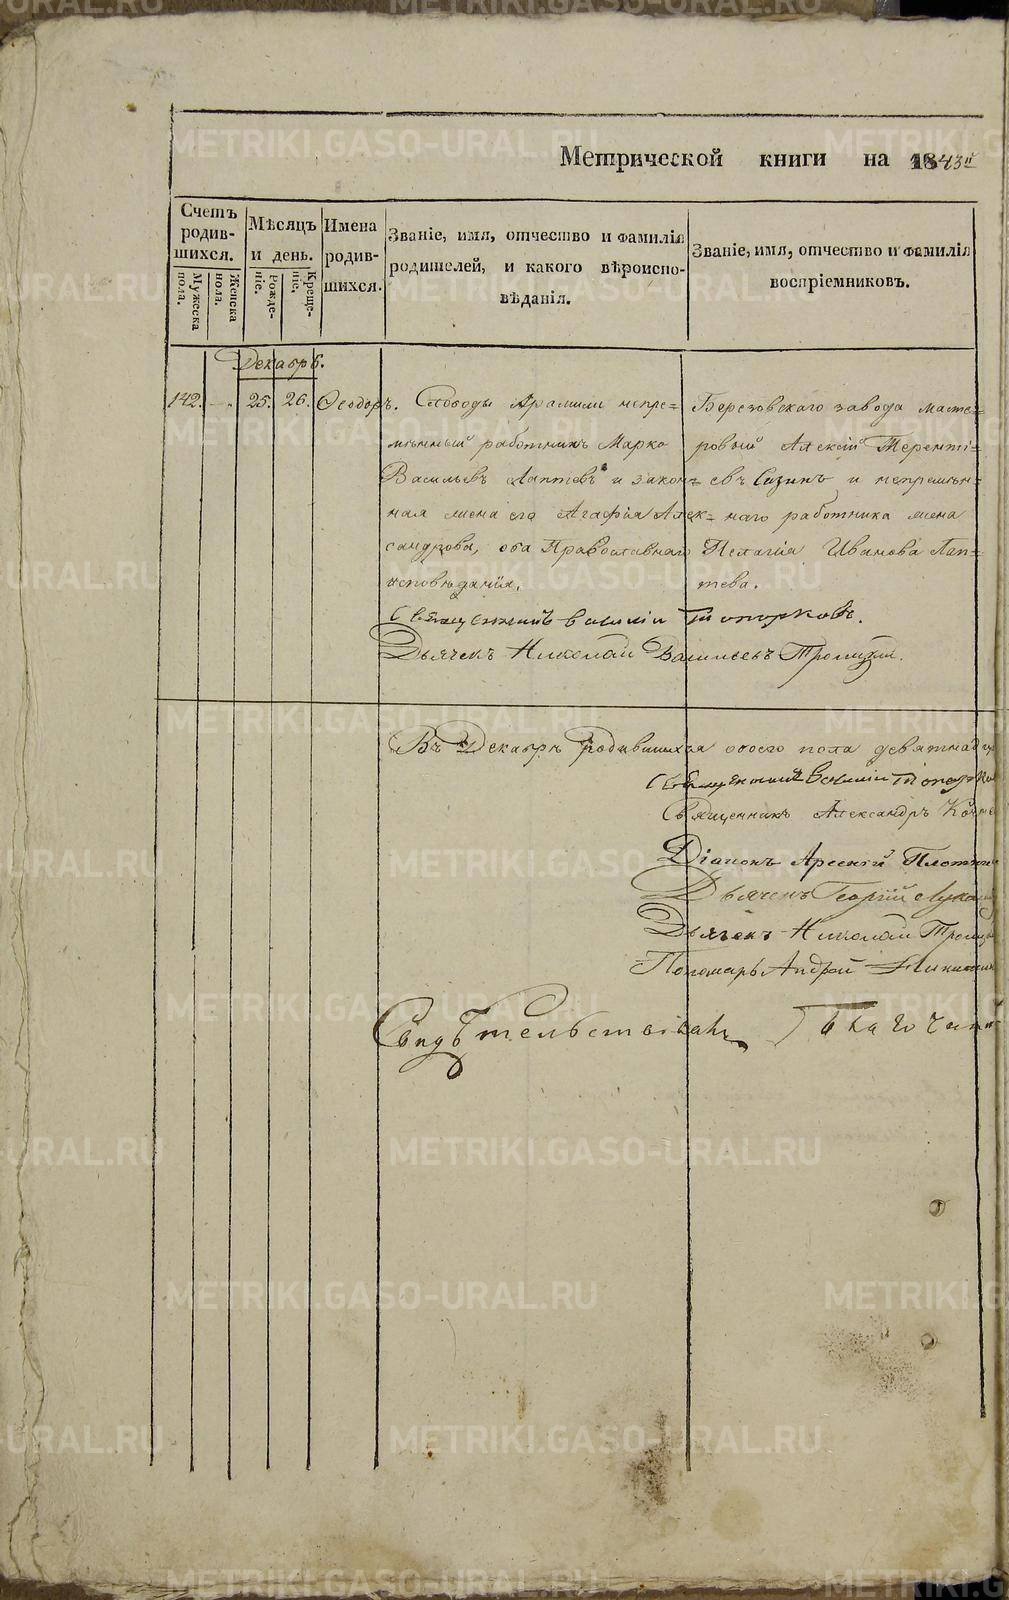 Метрической книги на 1843й
Счетъ родив-шихся.
Мужеска пола.
Женска пола.
Мѣсяцъ и день.
Рожде-ніе.
Креще-ніе.
Имена родив-шихся.
Званіе, имя, отчество и фамилія
родителей, и какого вѣроиспо-
вѣданія.
Званіе, имя, отчество и фамилія
воспріемниковъ.
Декабрь.
142. - 25. 26. Ѳеодоръ.
Слободы Арамили непре=
мѣнный работникъ Марко
Васильевъ Лаптевъ и закон=
ная жена его Агафія Алек=
сандрова, оба Православнаго
исповѣданія.
Березовскаго завода масте=
ровый Алексій Теренті=
евъ Сизинъ и непремѣн=
наго работника жена
Пелагія Иванова Лап=
тева.
Священникъ Василій Топорковъ.
Дьячекъ Николай Васильевъ Троицкій.
Въ Декабрѣ родившихся обоего пола девятнадц
Священникъ Василій Топорков
Священникъ Александръ
Діаконъ Арсеній Плотник
Дьячекъ Георгій Лука
Дьячекъ Николай Троицк
Пономарь Андрей Никитин
Свидѣтельствовалъ
METRIKI.GASO-URAL.RU